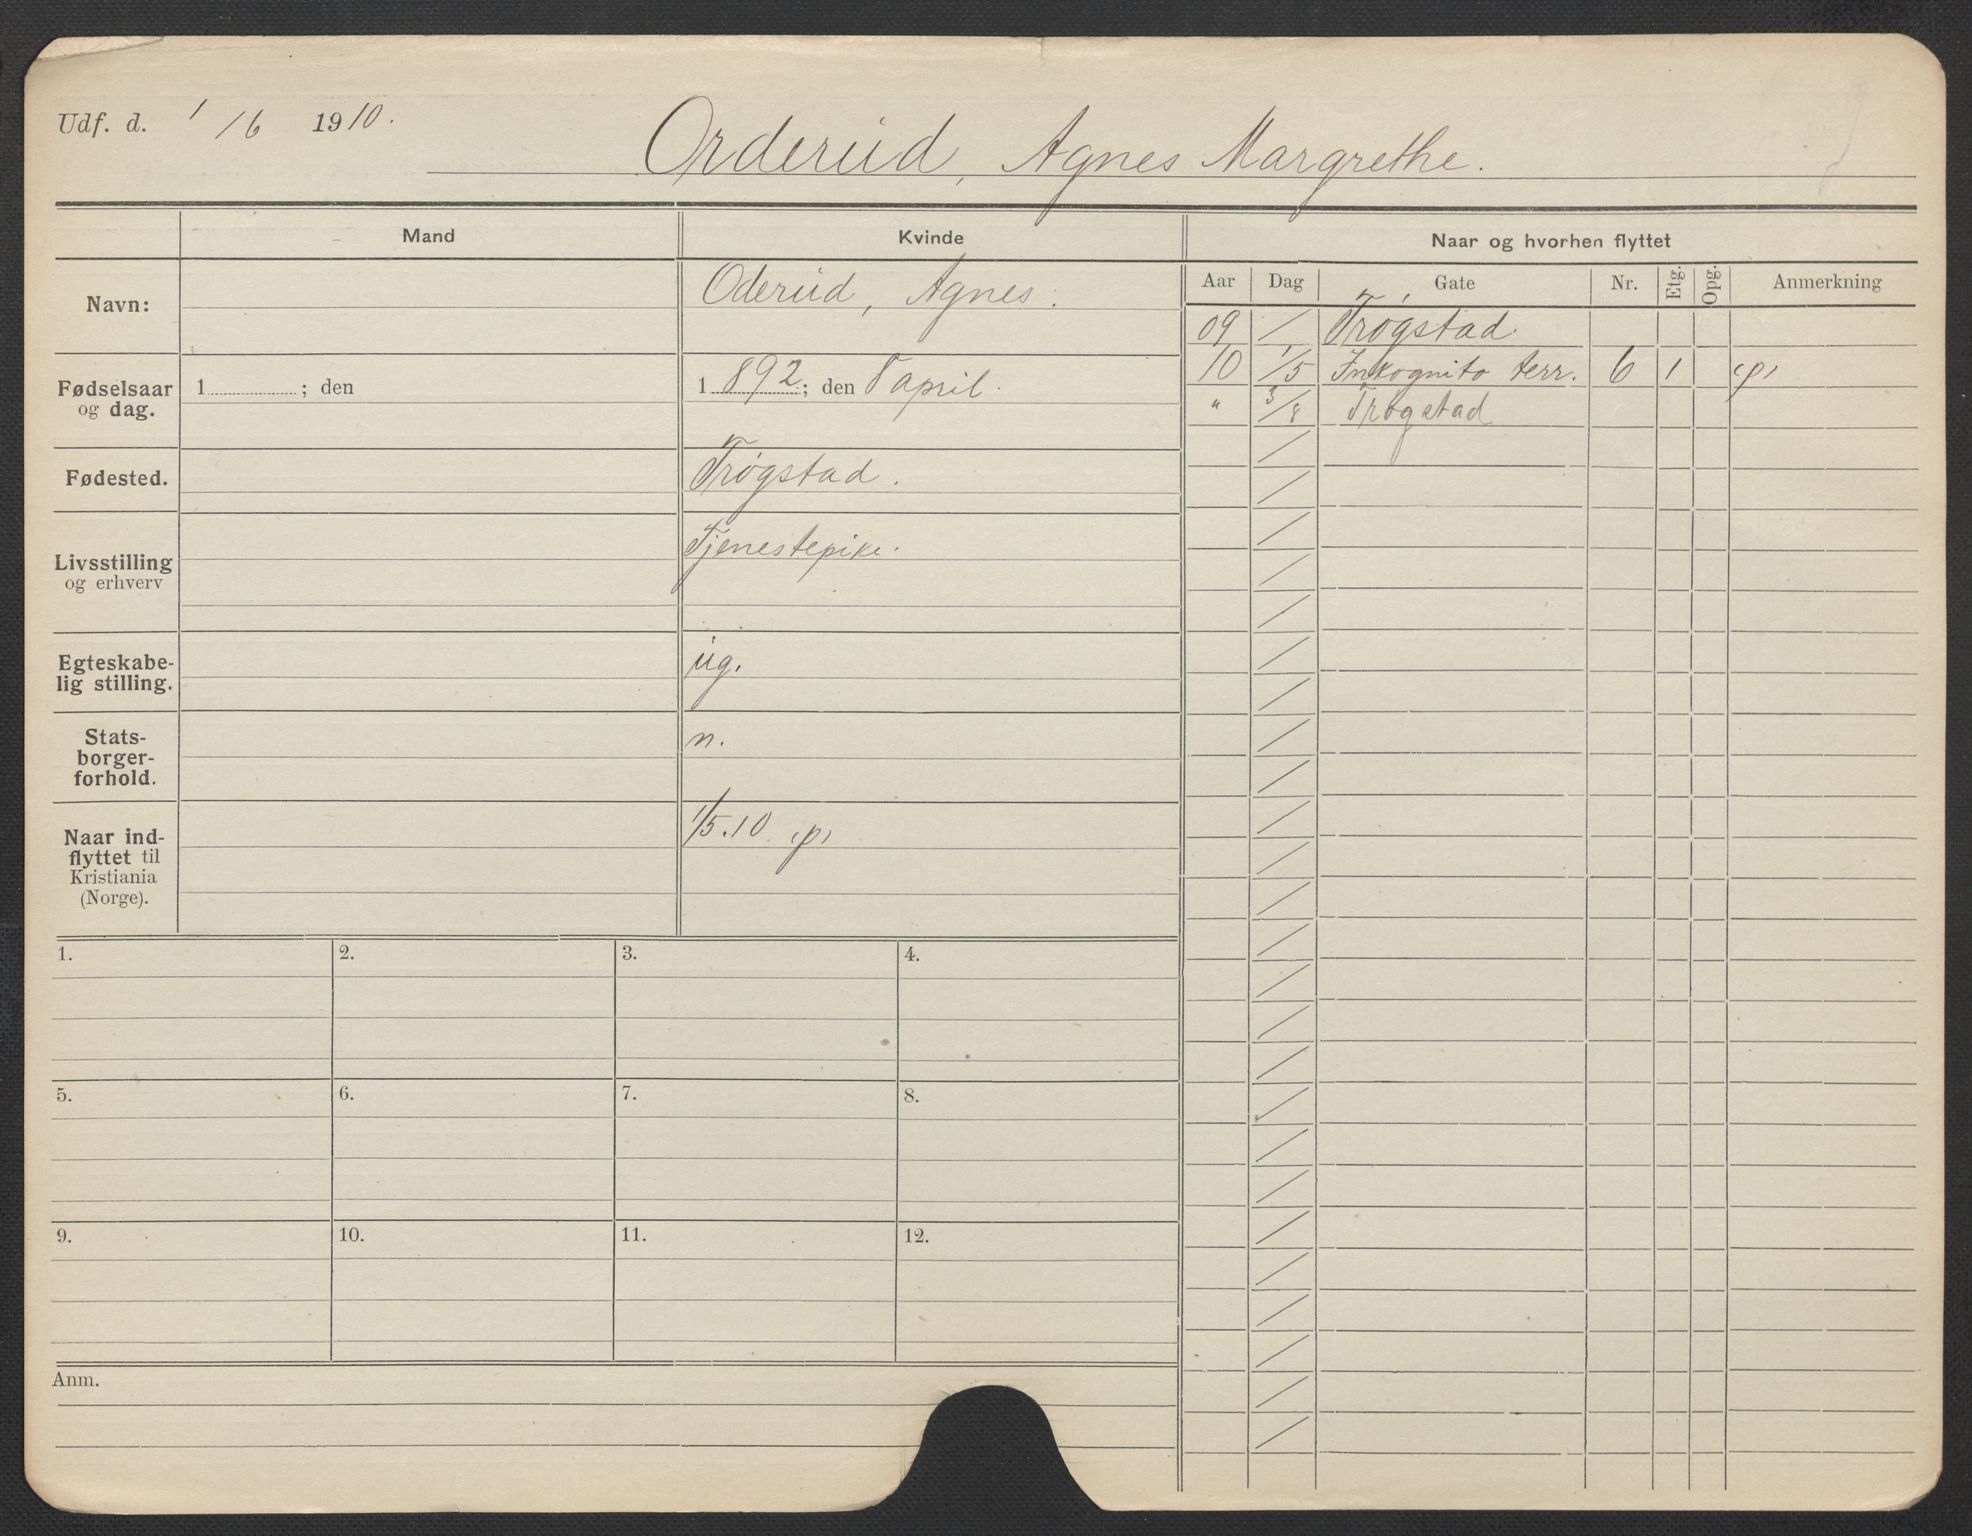 Udf. d. 1/6 1910.
Orderud, Agnes Margrethe.
Mand Kvinde Naar og hvorhen flyttet
Aar Dag Gate Nr. Etg. Opg. Anmerkning
Navn: Oderud, Agnes.
Fødselsaar og dag. 1 ; den 1892; den april.
Fødested. Trøgstad.
Livsstilling og erhverv Tjenestepike.
Egteskabe-
lig stilling. ug.
Stats-
borger-
forhold. n.
Naar ind-
flyttet til
Kristiania
(Norge). 1/5.10 (p)
09 / Trøgstad
10 1/5 Inkognito terr. 6 1 (p)
" 3/8 Trøgstad
1. 2. 3. 4.
5. 6. 7. 8.
9. 10. 11. 12.
Anm.